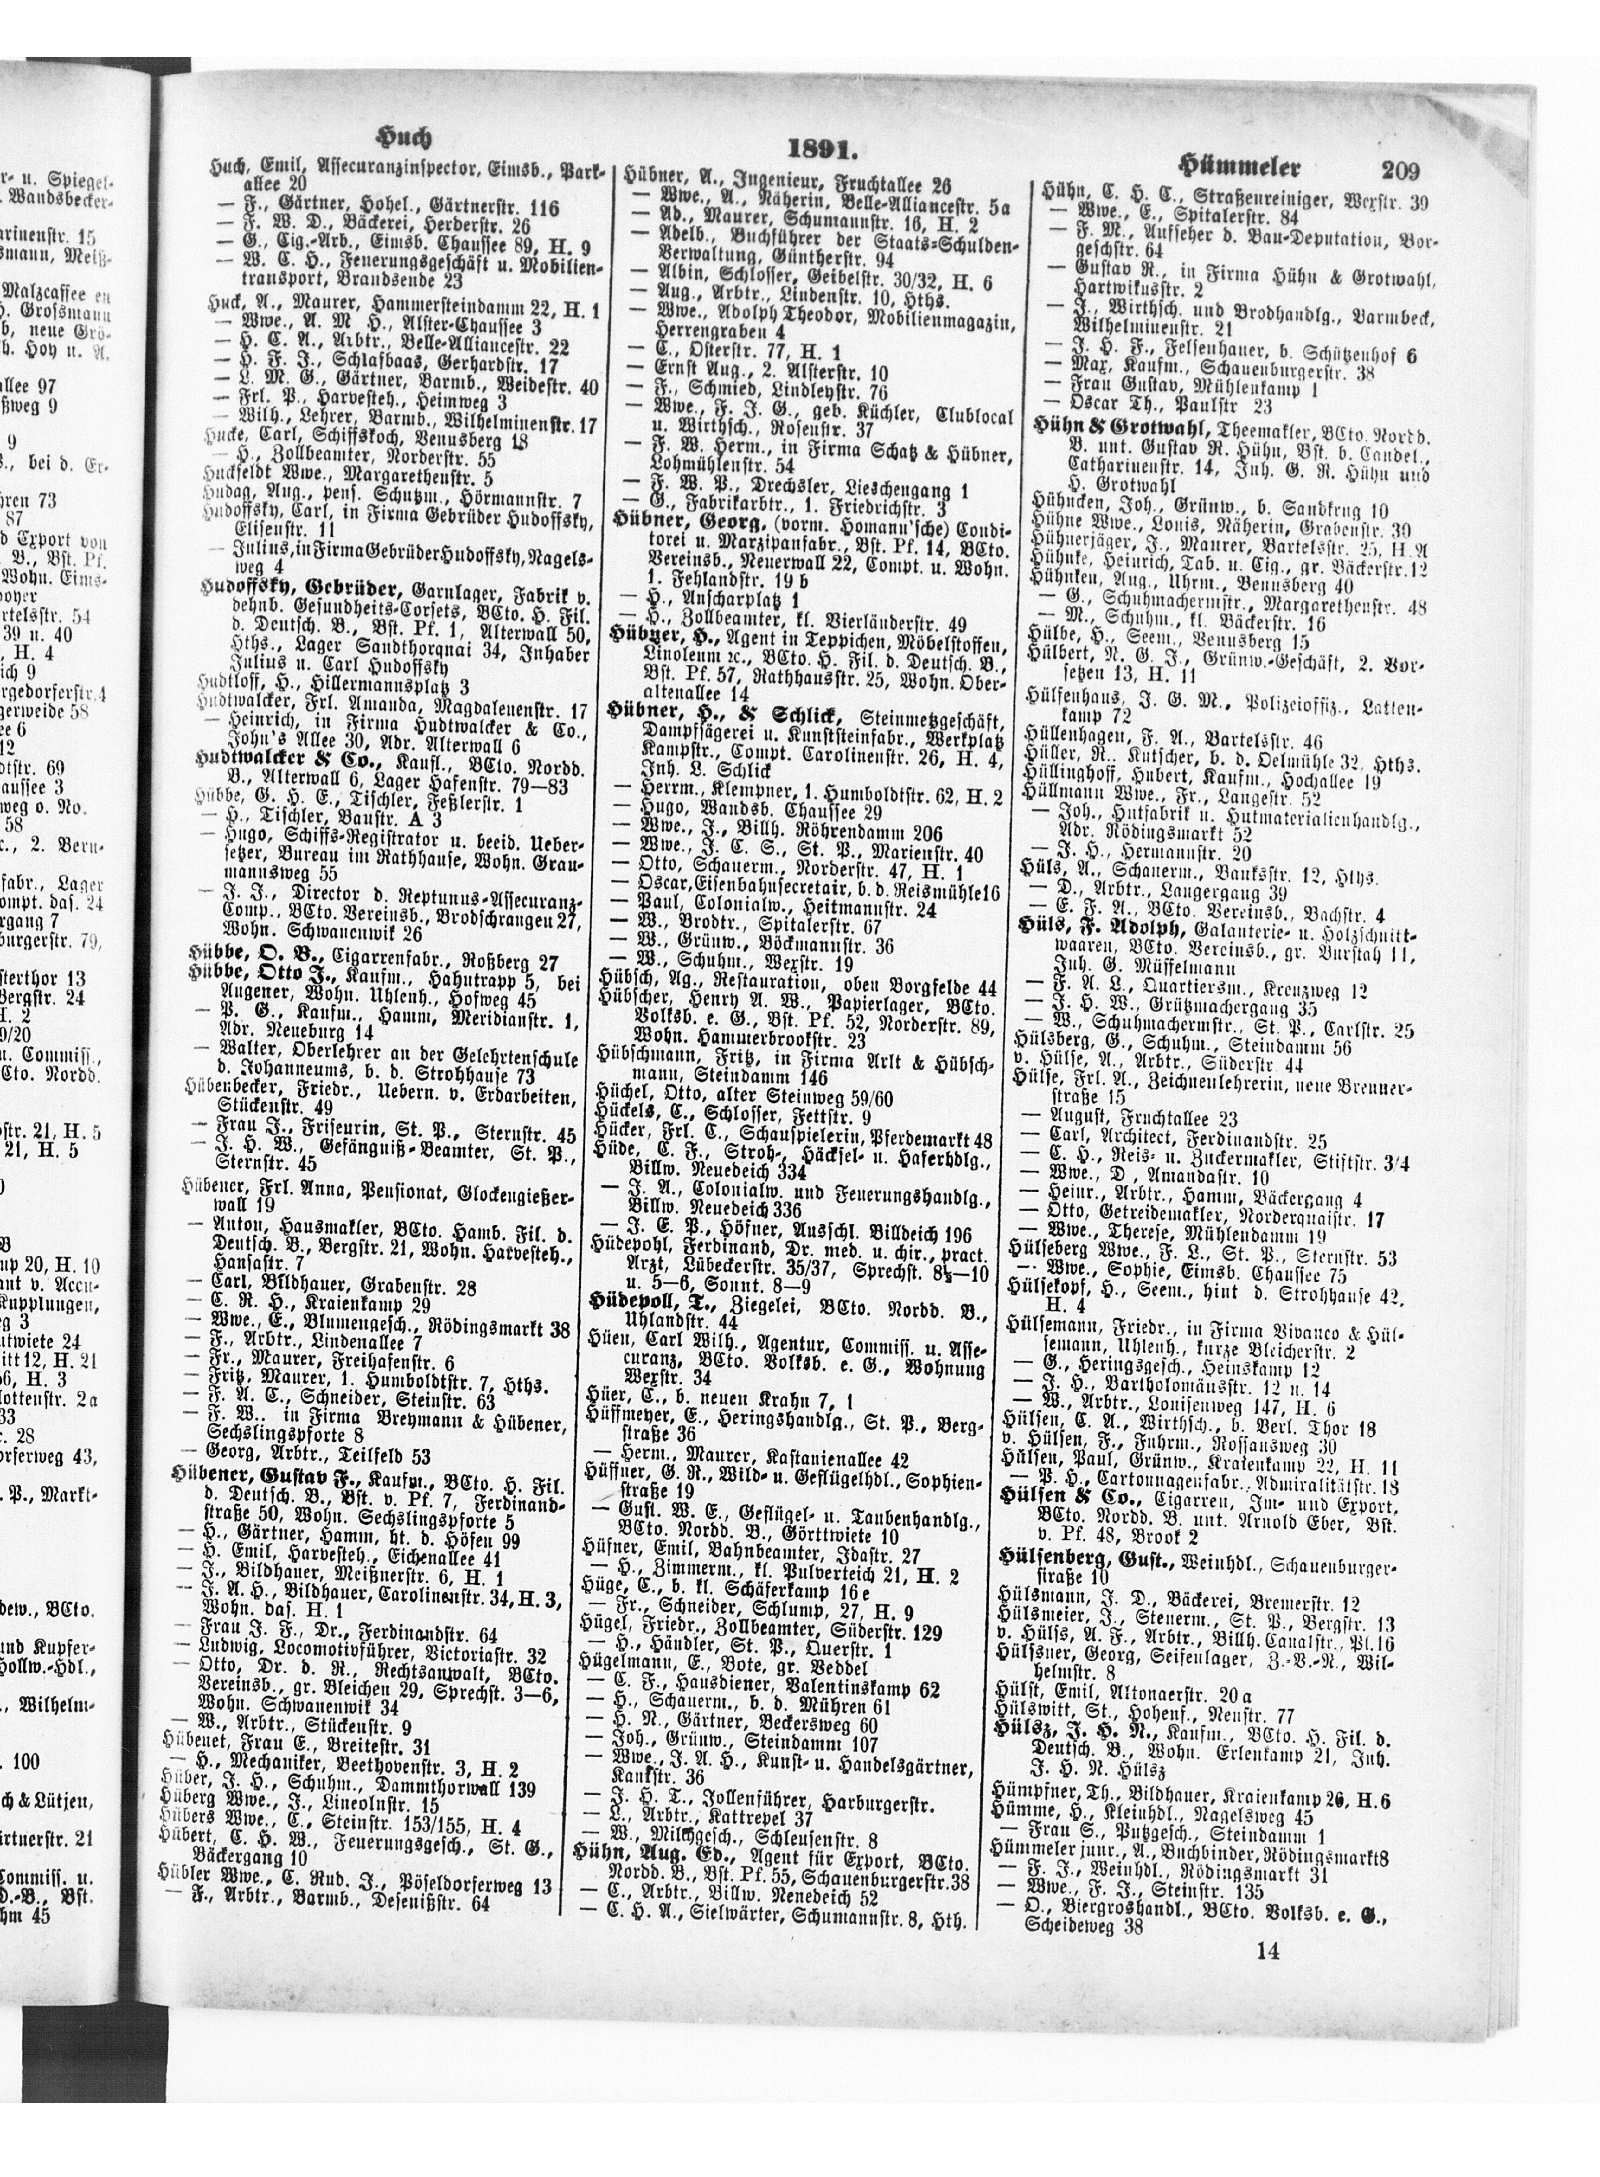 Huch
1891.
Hümmeler 209
Huch, Emil, Assecuranzinspector, Eimsb., Park-
allee 20
— F., Gärtner, Hohel., Gärtnerstr. 116
— F. W. D., Bäckerei, Herderstr. 26
— G., Cig.-Arb., Eimsb. Chaussee 89, H. 9
— W. C. H., Feuerungsgeschäft u. Mobilien-
transport, Brandsende 23
Huck, A., Maurer, Hammersteindamm 22, H. 1
— Wwe., A. M H., Alster-Chaussee 3
— H. C. A., Arbtr., Belle-Alliancestr. 22
— H. F. J., Schlafbaas, Gerhardstr. 17
— L. M. G., Gärtner, Barmb., Weidestr. 40
— Frl. P., Harvesteh., Heimweg 3
— Wilh., Lehrer, Barmb., Wilhelminenstr. 17
Hucke, Carl, Schiffskoch, Venusberg 18
— H., Zollbeamter, Norderstr. 55
Huckfeldt Wwe., Margarethenstr. 5
Hudag, Aug., pens. Schutzm., Hörmannstr. 7
Hudoffsky, Carl, in Firma Gebrüder Hudoffsky,
Elisenstr. 11
— Julius, in Firma Gebrüder Hudoffsky, Nagels-
weg 4
Hudoffsky, Gebrüder, Garnlager, Fabrik v.
dehnb. Gesundheits-Corsets, BCto. H. Fil.
d. Deutsch. B., Bst. Pf. 1, Alterwall 50,
Hths., Lager Sandthorquai 34, Inhaber
Julius u. Carl Hudoffsky
Hudtloff, H., Hillermannsplatz 3
Hudtwalcker, Frl. Amanda, Magdalenenstr. 17
— Heinrich, in Firma Hudtwalcker & Co.,
John's Allee 30, Adr. Alterwall 6
Hudtwalcker & Co., Kaufl., BCto. Nordd.
B., Alterwall 6, Lager Hafenstr. 79—83
Hübbe, G. H. E., Tischler, Feßlerstr. 1
— H., Tischler, Baustr. A 3
— Hugo, Schiffs-Registrator u. beeid. Ueber-
setzer, Bureau im Rathhause, Wohn. Grau-
mannsweg 55
— J. J., Director d. Neptunus-Assecuranz-
Comp., BCto. Vereinsb., Brodschrangen 27,
Wohn. Schwanenwik 26
Hübbe, O. B., Cigarrenfabr., Roßberg 27
Hübbe, Otto J., Kaufm., Hahntrapp 5, bei
Augener, Wohn. Uhlenh., Hofweg 45
— P. G., Kaufm., Hamm, Meridianstr. 1,
Adr. Neueburg 14
— Walter, Oberlehrer an der Gelehrtenschule
d. Johanneums, b. d. Strohhause 73
Hübenbecker, Friedr., Uebern. v. Erdarbeiten,
Stückenstr. 49
— Frau J., Friseurin, St. P., Sternstr. 45
— J. H. W., Gefängniß-Beamter, St. P.,
Sternstr. 45
Hübener, Frl. Anna, Pensionat, Glockengießer-
wall 19
— Anton, Hausmakler, BCto. Hamb. Fil. d.
Deutsch. B., Bergstr. 21, Wohn. Harvesteh.,
Hansastr. 7
— Carl, Bildhauer, Grabenstr. 28
— C. R. H., Kraienkamp 29
— Wwe., E., Blumengesch., Rödingsmarkt 38
— F., Arbtr., Lindenallee 7
— Fr., Maurer, Freihafenstr. 6
— Fritz, Maurer, 1. Humboldtstr. 7, Hths.
— F. A. C., Schneider, Steinstr. 63
— F. W., in Firma Breymann & Hübener,
Sechslingspforte 8
— Georg, Arbtr., Teilfeld 53
Hübener, Gustav F., Kaufm., BCto. H. Fil.
d. Deutsch. B., Bst. v. Pf. 7, Ferdinand-
straße 50, Wohn. Sechslingspforte 5
— H., Gärtner, Hamm, ht. d. Höfen 99
— H. Emil, Harvesteh., Eichenallee 41
— J., Bildhauer, Meißnerstr. 6, H. 1
— J. A. H., Bildhauer, Carolinenstr. 34, H. 3,
Wohn. das. H. 1
— Frau J. F., Dr., Ferdinandstr. 64
— Ludwig, Locomotivführer, Victoriastr. 32
— Otto, Dr. d. R., Rechtsanwalt, BCto.
Vereinsb., gr. Bleichen 29, Sprechst. 3—6,
Wohn. Schwanenwik 34
— W., Arbtr., Stückenstr. 9
Hübenet, Frau E., Breitestr. 31
— H., Mechaniker, Beethovenstr. 3, H. 2
Hüber, J. H., Schuhm., Dammthorwall 139
Hüberg Wwe., J., Lincolnstr. 15
Hübers Wwe., C., Steinstr. 153/155, H. 4
Hübert, C. H. W., Feuerungsgesch., St. G.,
Bäckergang 10
Hübler Wwe., C. Rud. J., Pöseldorferweg 13
— F., Arbtr., Barmb., Desenißstr. 64
Hübner, A., Ingenieur, Fruchtallee 26
— Wwe., A., Näherin, Belle-Alliancestr. 5a
— Ad., Maurer, Schumannstr. 16, H. 2
— Adelb., Buchführer der Staats-Schulden-
Verwaltung, Güntherstr. 94
— Albin, Schlosser, Geibelstr. 30/32, H. 6
— Aug., Arbtr., Lindenstr. 10, Hths.
— Wwe., Adolph Theodor, Mobilienmagazin,
Herrengraben 4
— C., Osterstr. 77, H. 1
— Ernst Aug., 2. Alsterstr. 10
— F., Schmied, Lindleystr. 76
— Wwe., F. J. G., geb. Küchler, Clublocal
u. Wirthsch., Rosenstr. 37
— F. W. Herm., in Firma Schatz & Hübner,
Lohmühlenstr. 54
— F. W. P., Drechsler, Lieschengang 1
— G., Fabrikarbtr., 1. Friedrichstr. 3
Hübner, Georg, (vorm. Homann'sche) Condi-
torei u. Marzipanfabr., Bst. Pf. 14, BCto.
Vereinsb., Neuerwall 22, Compt. u. Wohn.
1. Fehlandstr. 19 b
— H., Anscharplatz 1
— H., Zollbeamter, kl. Vierländerstr. 49
Hübner, H., Agent in Teppichen, Möbelstoffen,
Linoleum ꝛc., BCto. H. Fil. d. Deutsch. B.,
Bst. Pf. 57, Rathhausstr. 25, Wohn. Ober-
altenallee 14
Hübner, H., & Schlick, Steinmetzgeschäft,
Dampfsägerei u. Kunststeinfabr., Werkplatz
Kampstr., Compt. Carolinenstr. 26, H. 4,
Inh. L. Schlick
— Herrm., Klempner, 1. Humboldtstr. 62, H. 2
— Hugo, Wandsb. Chaussee 29
— Wwe., J., Billh. Röhrendamm 206
— Wwe., J. C. S., St. P., Marienstr. 40
— Otto, Schauerm., Norderstr. 47, H. 1
— Oscar, Eisenbahnsecretair, b. d. Reismühle 16
— Paul, Colonialw., Heitmannstr. 24
— W., Brodtr., Spitalerstr. 67
— W., Grünw., Böckmannstr. 36
— W., Schuhm., Wexstr. 19
Hübsch, Ag., Restauration, oben Borgfelde 44
Hübscher, Henry A. W., Papierlager, BCto.
Volksb. e. G., Bst. Pf. 52, Norderstr. 89,
Wohn. Hammerbrookstr. 23
Hübschmann, Fritz, in Firma Arlt & Hübsch-
mann, Steindamm 146
Hüchel, Otto, alter Steinweg 59/60
Hückels, C., Schlosser, Fettstr. 9
Hücker, Frl. C., Schauspielerin, Pferdemarkt 48
Hüde, C. F., Stroh-, Häcksel- u. Haferhdlg.,
Billw. Neuedeich 334
— J. A., Colonialw. und Feuerungshandlg.,
Billw. Neuedeich 336
— J. E. P., Höfner, Ausschl. Billdeich 196
Hüdepohl, Ferdinand, Dr. med. u. chir., pract.
Arzt, Lübeckerstr. 35/37, Sprechst. 8½—10
u. 5—6, Sonnt. 8—9
Hüdepoll, T., Ziegelei, BCto. Nordd. B.,
Uhlandstr. 44
Hüen, Carl Wilh., Agentur, Commiss. u. Asse-
curanz, BCto. Volksb. e. G., Wohnung
Wexstr. 34
Hüer, C., b. neuen Krahn 7, 1
Hüffmeyer, E., Heringshandlg., St. P., Berg-
straße 36
— Herm., Maurer, Kastanienallee 42
Hüffner, G. R., Wild- u. Geflügelhdl., Sophien-
straße 19
— Gust. W. E., Geflügel- u. Taubenhandlg.,
BCto. Nordd. B., Görttwiete 10
Hüfner, Emil, Bahnbeamter, Idastr. 27
— H., Zimmerm., kl. Pulverteich 21, H. 2
Hüge, C., b. kl. Schäferkamp 16e
— Fr., Schneider, Schlump, 27, H. 9
Hügel, Friedr., Zollbeamter, Süderstr. 129
— H., Händler, St. P., Querstr. 1
Hügelmann, E., Bote, gr. Veddel
— C. F., Hausdiener, Valentinskamp 62
— H., Schauerm., b. d. Mühren 61
— H. N., Gärtner, Beckersweg 60
— Joh., Grünw., Steindamm 107
— Wwe., J. A. H., Kunst- u. Handelsgärtner,
Kantstr. 36
— J. H. T., Jollenführer, Harburgerstr.
— L., Arbtr., Kattrepel 37
— W., Milchgesch., Schleusenstr. 8
Hühn, Aug. Ed., Agent für Export, BCto.
Nordd. B., Bst. Pf. 55, Schauenburgerstr. 38
— C., Arbtr., Billw. Neuedeich 52
— C. H. A., Sielwärter, Schumannstr. 8, Hth.
Hühn, C. H. C., Straßenreiniger, Wexstr. 39
— Wwe., E., Spitalerstr. 84
— F. M., Aufseher d. Bau-Deputation, Vor-
geschstr. 64
— Gustav R., in Firma Hühn & Grotwahl,
Hartwikusstr. 2
— J., Wirthsch. und Brodhandlg., Barmbeck,
Wilhelminenstr. 21
— J. H. F., Felsenhauer, b. Schützenhof 6
— Max, Kaufm., Schauenburgerstr. 38
— Frau Gustav, Mühlenkamp 1
— Oscar Th., Paulstr 23
Hühn & Grotwahl, Theemakler, BCto. Nordd.
B. unt. Gustav R. Hühn, Bst. b. Candel.,
Catharinenstr. 14, Inh. G. R. Hühn und
H. Grotwahl
Hühncken, Joh., Grünw., b. Sandkrug 10
Hühne Wwe., Louis, Näherin, Grabenstr. 30
Hühnerjäger, J., Maurer, Bartelsstr. 25, H. A
Hühnke, Heinrich, Tab. u. Cig., gr. Bäckerstr. 12
Hühnken, Aug., Uhrm., Venusberg 40
— G., Schuhmachermstr., Margarethenstr. 48
— M., Schuhm., kl. Bäckerstr. 16
Hülbe, H., Seem., Venusberg 15
Hülbert, N. G. J., Grünw.-Geschäft, 2. Vor-
setzen 13, H. 11
Hülfenhaus, J. G. M., Polizeioffiz., Latten-
kamp 72
Hüllenhagen, F. A., Bartelsstr. 46
Hüller, N., Kutscher, b. d. Oelmühle 32, Hths.
Hüllinghoff, Hubert, Kaufm., Hochallee 19
Hüllmann Wwe., Fr., Langestr. 52
— Joh., Hutfabrik u. Hutmaterialienhandlg.,
Adr. Rödingsmarkt 52
— J. H., Hermannstr. 20
Hüls, A., Schauerm., Banksstr. 12, Hths.
— D., Arbtr., Langergang 39
— E. F. A., BCto. Vereinsb., Bachstr. 4
Hüls, F. Adolph, Galanterie- u. Holzschnitt-
waaren, BCto. Vereinsb., gr. Burstah 11,
Inh. G. Müffelmann
— F. A. L., Quartiersm., Kreuzweg 12
— J. H. W., Grützmachergang 35
— W., Schuhmachermstr., St. P., Carlstr. 25
Hülsberg, G., Schuhm., Steindamm 56
v. Hülse, A., Arbtr., Süderstr. 44
Hülse, Frl. A., Zeichnenlehrerin, neue Brenner-
straße 15
— August, Fruchtallee 23
— Carl, Architect, Ferdinandstr. 25
— C. H., Reis- u. Zuckermakler, Stiftstr. 3/4
— Wwe., D, Amandastr. 10
— Heinr., Arbtr., Hamm, Bäckergang 4
— Otto, Getreidemakler, Norderquaistr. 17
— Wwe., Therese, Mühlendamm 19
Hülseberg Wwe., F. L., St. P., Sternstr. 53
— Wwe., Sophie, Eimsb. Chaussee 75
Hülsekopf, H., Seem., hint d. Strohhause 42,
H. 4
Hülsemann, Friedr., in Firma Vivanco & Hül-
semann, Uhlenh., kurze Bleicherstr. 2
— G., Heringsgesch., Heinskamp 12
— J. H., Bartholomäusstr. 12 u. 14
— W., Arbtr., Louisenweg 147, H. 6
Hülsen, C. A., Wirthsch., b. Berl. Thor 18
v. Hülsen, F., Fuhrm., Rossausweg 30
Hülsen, Paul, Grünw., Kraienkamp 22, H. 11
— P. H., Cartonnagenfabr., Admiralitätstr. 18
Hülsen & Co., Cigarren, Im- und Export,
BCto. Nordd. B. unt. Arnold Eber, Bst.
v. Pf. 48, Brook 2
Hülsenberg, Gust., Weinhdl., Schauenburger-
straße 10
Hülsmann, J. D., Bäckerei, Bremerstr. 12
Hülsmeier, J., Steuerm., St. P., Bergstr. 13
v. Hülss, A. F., Arbtr., Billh. Canalstr., Pl. 16
Hülssner, Georg, Seifenlager, Z.-V.-N., Wil-
helmstr. 8
Hülst, Emil, Altonaerstr. 20a
Hülswitt, St., Hohenf., Neustr. 77
Hülsz, J. H. N., Kaufm., BCto. H. Fil. d.
Deutsch. B., Wohn. Erlenkamp 21, Inh.
J. H. N. Hülsz
Hümpfner, Th., Bildhauer, Kraienkamp 26, H. 6
Hümme, H., Kleinhdl., Nagelsweg 45
— Frau S., Putzgesch., Steindamm 1
Hümmeler junr., A., Buchbinder, Rödingsmarkt 8
— F. J., Weinhdl., Rödingsmarkt 31
— Wwe., F. J., Steinstr. 135
— O., Biergroshandl., BCto. Volksb. e. G.,
Scheideweg 38
14